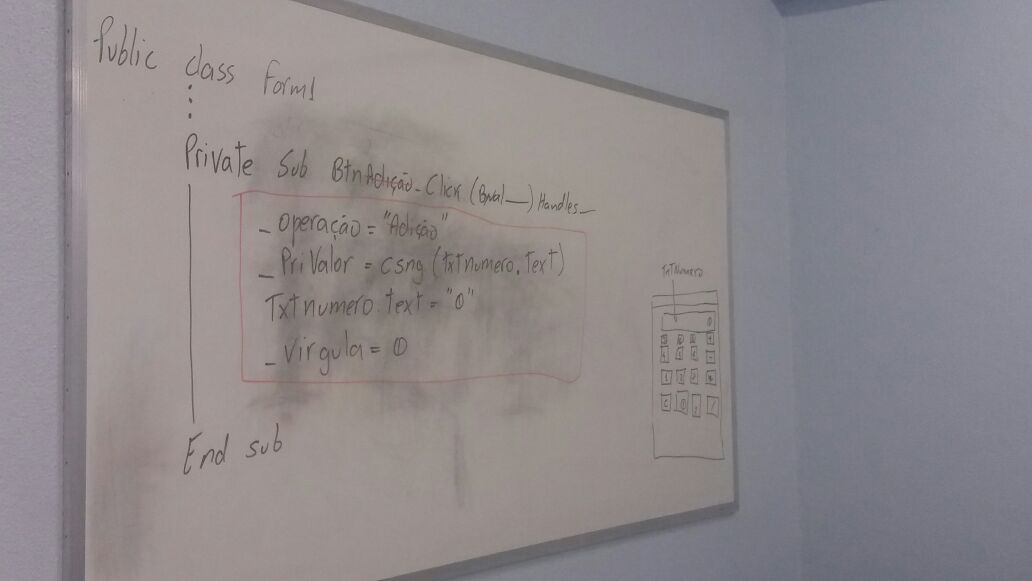 Public class Form1
Private Sub BtnAdição_Click (Byval__) Handles_
_operação = "Adição"
_PriValor = csng (txtnumero.text)
Txtnumero.text = "0"
_Virgula = 0
End sub
TxTNumero
0